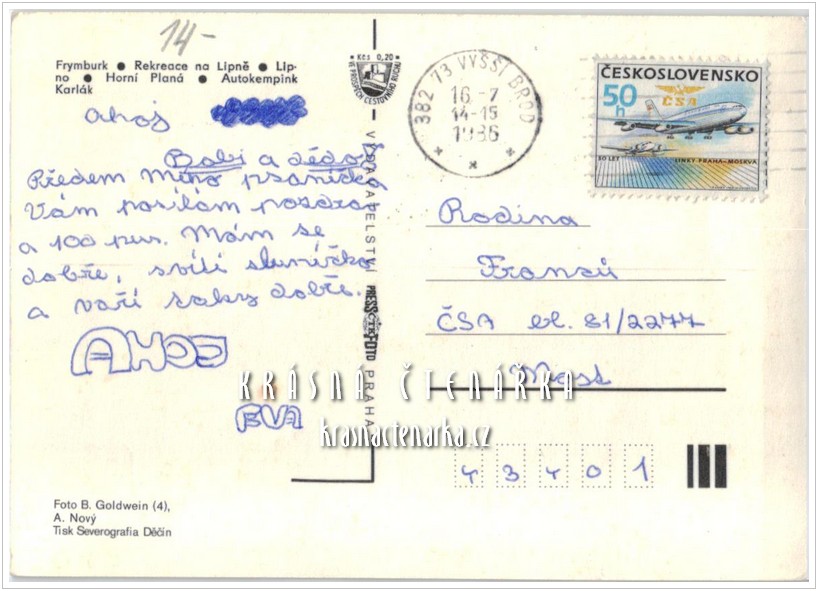 14-
Frymburk ● Rekreace na Lipně ● Lip-
no ● Horní Planá ● Autokempink
Karlák
Kčs 0,20
VE PROSPĚCH CESTOVNÍHO RUCHU
382 73 VYŠŠÍ BROD
16.-7
14-15
1986
ČESKOSLOVENSKO
50 h
ČSA
50 LET LINKY PRAHA-MOSKVA
Ahoj
Babi a dědo!
Předem mého psaníčka
Vám posílám pozdrav
a 100 pus. Mám se
dobře, svítí sluníčko
a vaří taky dobře.
AHOJ
EVA
VYDAVATELSTVÍ PRESSFOTO PRAHA
Rodina
Franců
ČSA bl. 81/2277
Most
43401
KRÁSNÁ ČTENÁŘKA
krasnactenarka.cz
Foto B. Goldwein (4),
A. Nový
Tisk Severografia Děčín